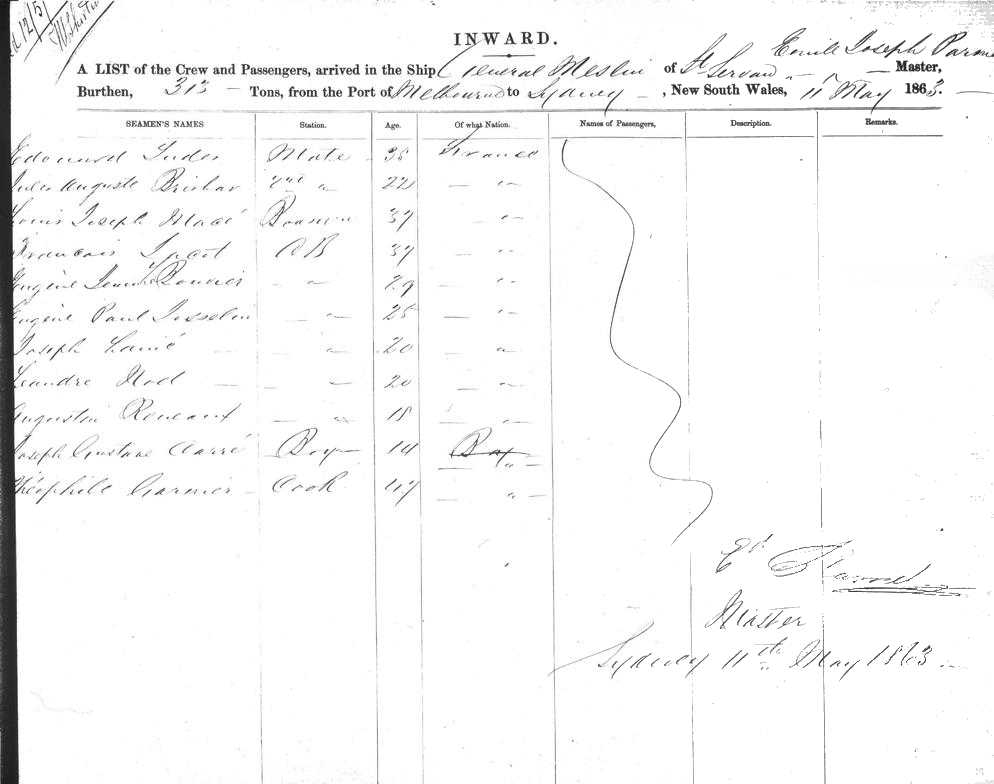 INWARD.
A LIST of the Crew and Passengers, arrived in the Ship General Meslin of St Servan Emile Joseph Master,
Burthen, Tons, from the Port of Melbourne to Sydney, New South Wales, 11 May 1863.
SEAMEN'S NAMES Station. Age. Of what Nation. Names of Passengers, Description. Remarks.
Edouard Mate 38 France
Jules Auguste 2nd " 22 — "
Louis Joseph Macé 37 — "
Francois AB 37 — "
Eugène — " 29 — "
Eugène Paul Josselin — " 25 — "
Joseph — " 20 — "
Leandre — — " 20 — "
Augustin — " 18 — "
Joseph Gustave Carré Boy 14 Boy — " —
Théophile Garnier Cook 47 — " —
Master
Sydney 11th May 1863